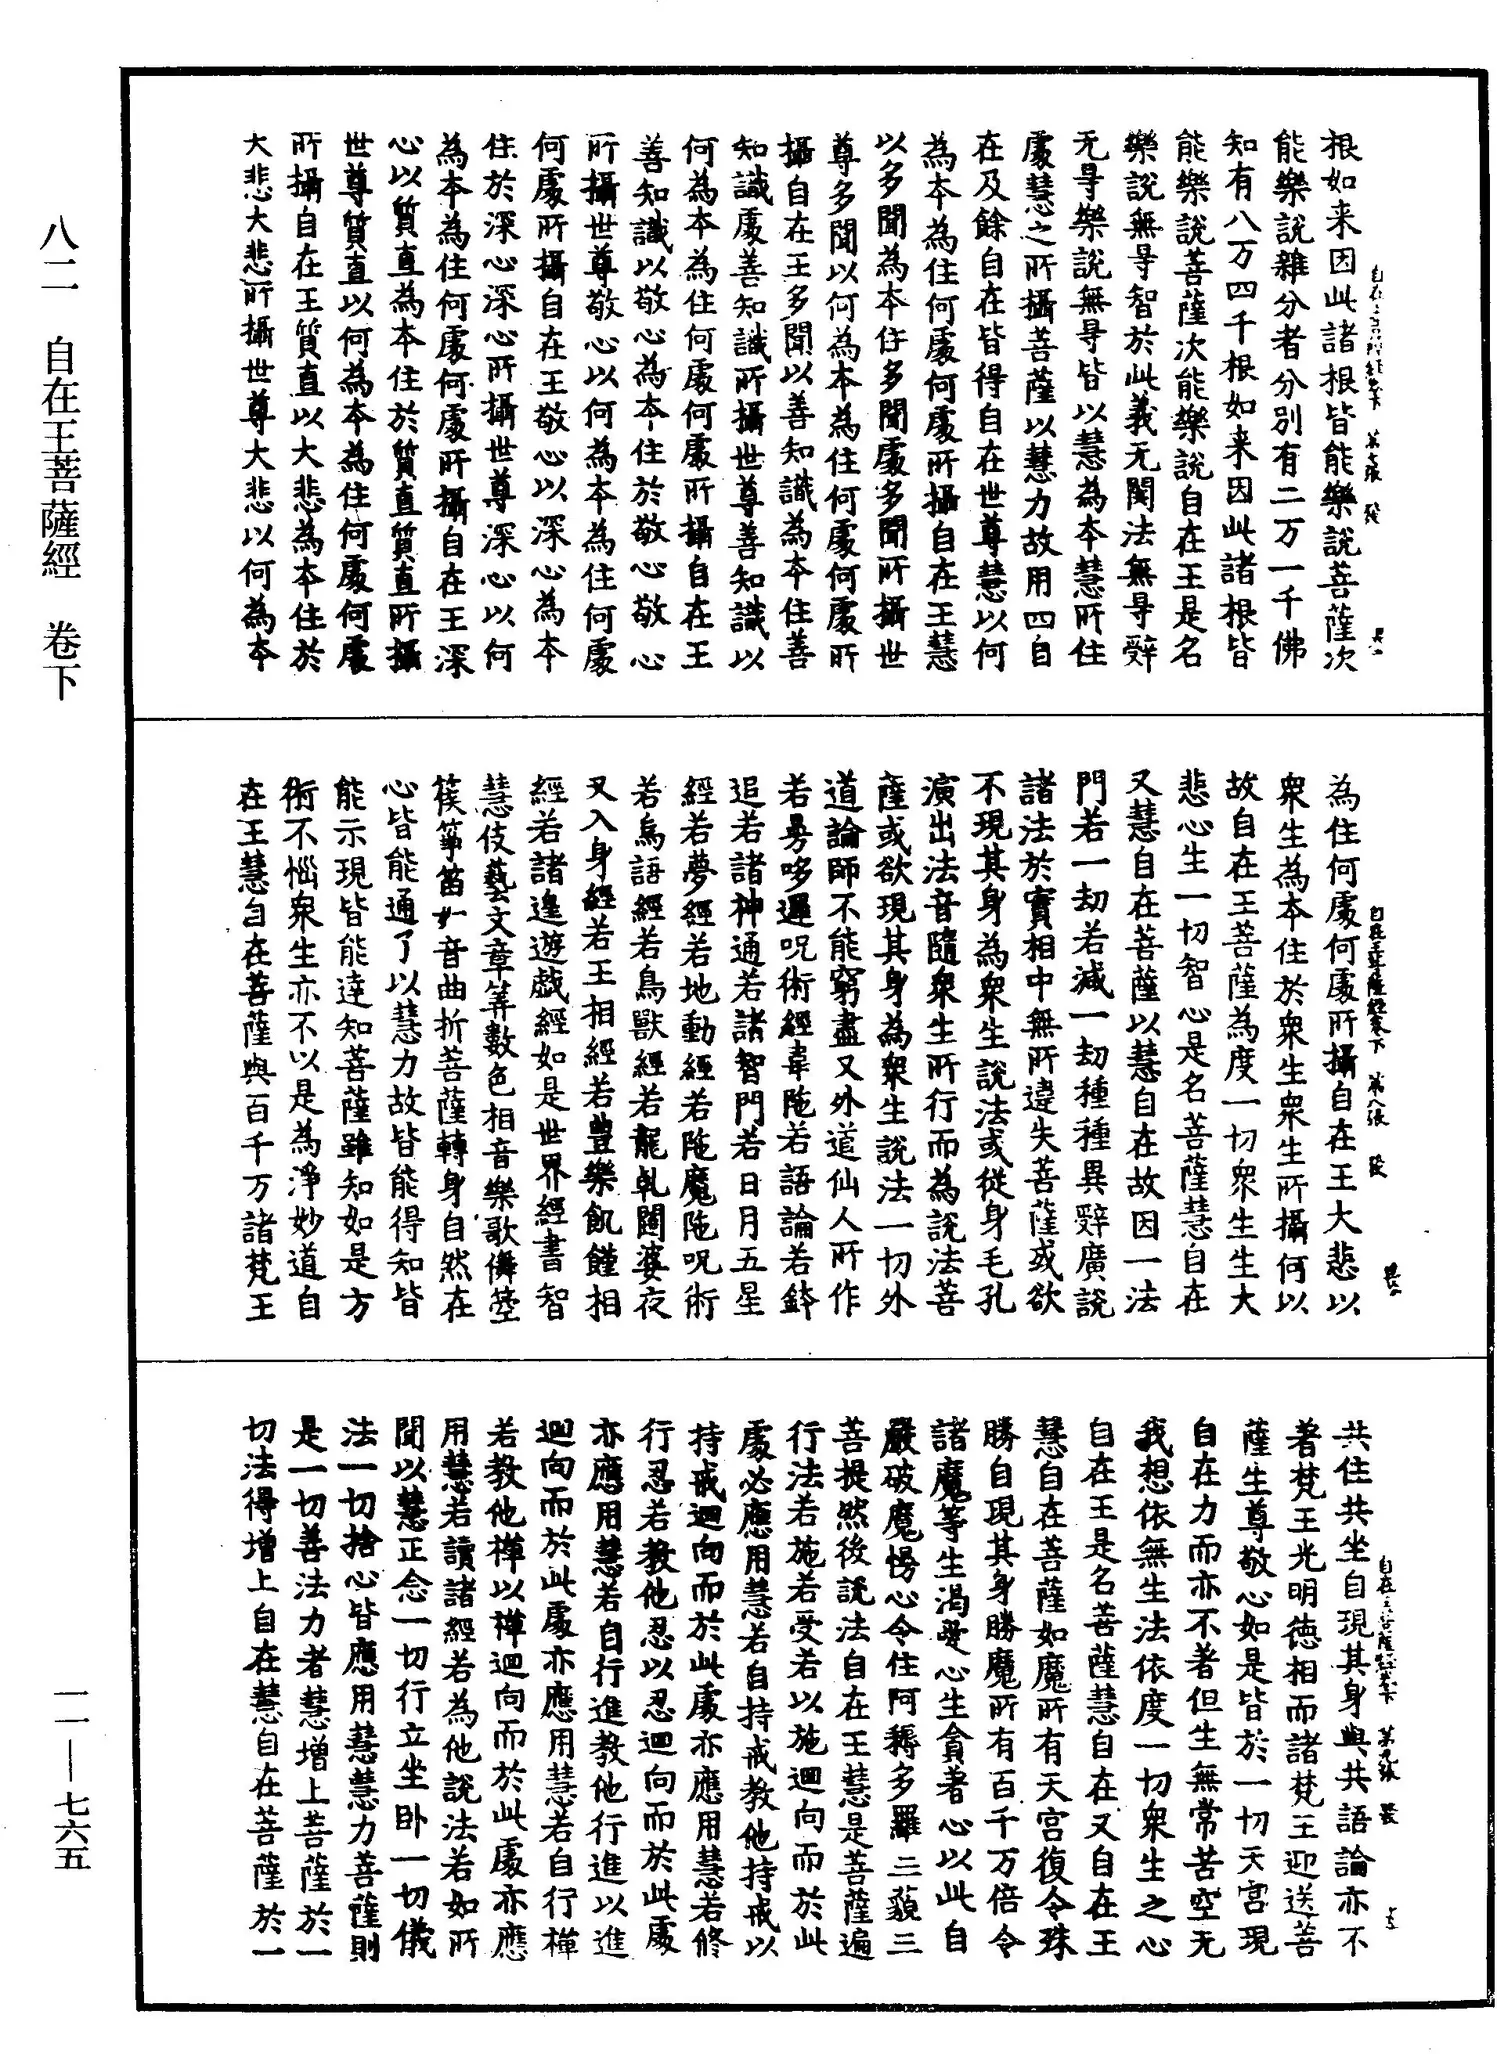 根如来因此諸根皆能樂說菩薩次
能樂說雜分者分別有二万一千佛
知有八万四千根如来因此諸根皆
能樂說菩薩次能樂說自在王是名
樂說無㝵智於此義无閡法無㝵辤
无㝵樂說無㝵皆以慧為本慧所住
處慧之所攝菩薩以慧力故用四自
在及餘自在皆得自在世尊慧以何
為本為住何處何處所攝自在王慧
以多聞為本住多聞處多聞所攝世
尊多聞以何為本為住何處何處所
攝自在王多聞以善知識為本住善
知識處善知識所攝世尊善知識以
何為本為住何處何處所攝自在王
善知識以敬心為本住於敬心敬心
所攝世尊敬心以何為本為住何處
何處所攝自在王敬心以深心為本
住於深心深心所攝世尊深心以何
為本為住何處何處所攝自在王深
心以質直為本住於質直質直所攝
世尊質直以何為本為住何處何處
所攝自在王質直以大悲為本住於
大悲大悲所攝世尊大悲以何為本
自在王菩薩經卷下 第七張 發
為住何處何處所攝自在王大悲以
衆生為本住於衆生衆生所攝何以
故自在王菩薩為度一切衆生生大
悲心生一切智心是名菩薩慧自在
又慧自在菩薩以慧自在故因一法
門若一劫若減一劫種種異辤廣說
諸法於實相中無所違失菩薩或欲
不現其身為衆生說法或從身毛孔
演出法音隨衆生所行而為說法菩
薩或欲現其身為衆生說法一切外
道論師不能窮盡又外道仙人所作
若㝵哆邏呪術經韋陁若語論若鉢
追若諸神通若諸智門若日月五星
經若夢經若地動經若陁魔陁呪術
若烏語經若鳥獸經若龍乹闥婆夜
叉入身經若王相經若豊樂飢饉相
經若諸遑遊戲經如是世界經書智
慧伎藝文章筭數色相音樂歌儛箜
篌箏笛女音曲折菩薩轉身自然在
心皆能通了以慧力故皆能得知皆
能示現皆能達知菩薩雖知如是方
術不惱衆生亦不以是為淨妙道自
在王慧自在菩薩與百千万諸梵王
自在王菩薩經卷下 第八張 發
共住共坐自現其身與共語論亦不
著梵王光明德相而諸梵王迎送菩
薩生尊敬心如是皆於一切天宮現
自在力而亦不著但生無常苦空无
我想依無生法依度一切衆生之心
自在王是名菩薩慧自在又自在王
慧自在菩薩如魔所有天宮復令殊
勝自現其身勝魔所有百千万倍令
諸魔等生渴愛心生貪著心以此自
嚴破魔慢心令住阿耨多羅三藐三
菩提然後說法自在王慧是菩薩遍
行法若施若受若以施迴向而於此
處必應用慧若自持戒教他持戒以
持戒迴向而於此處亦應用慧若修
行忍若教他忍以忍迴向而於此處
亦應用慧若自行進教他行進以進
迴向而於此處亦應用慧若自行禪
若教他禪以禪迴向而於此處亦應
用慧若讀諸經若為他說法若如所
聞以慧正念一切行立坐卧一切儀
法一切捨心皆應用慧慧力菩薩則
是一切善法力者慧增上菩薩於一
切法得增上自在慧自在菩薩於一
自在王菩薩經卷下 第九張 發
八二 自在王菩薩經 卷下
一一—七六五